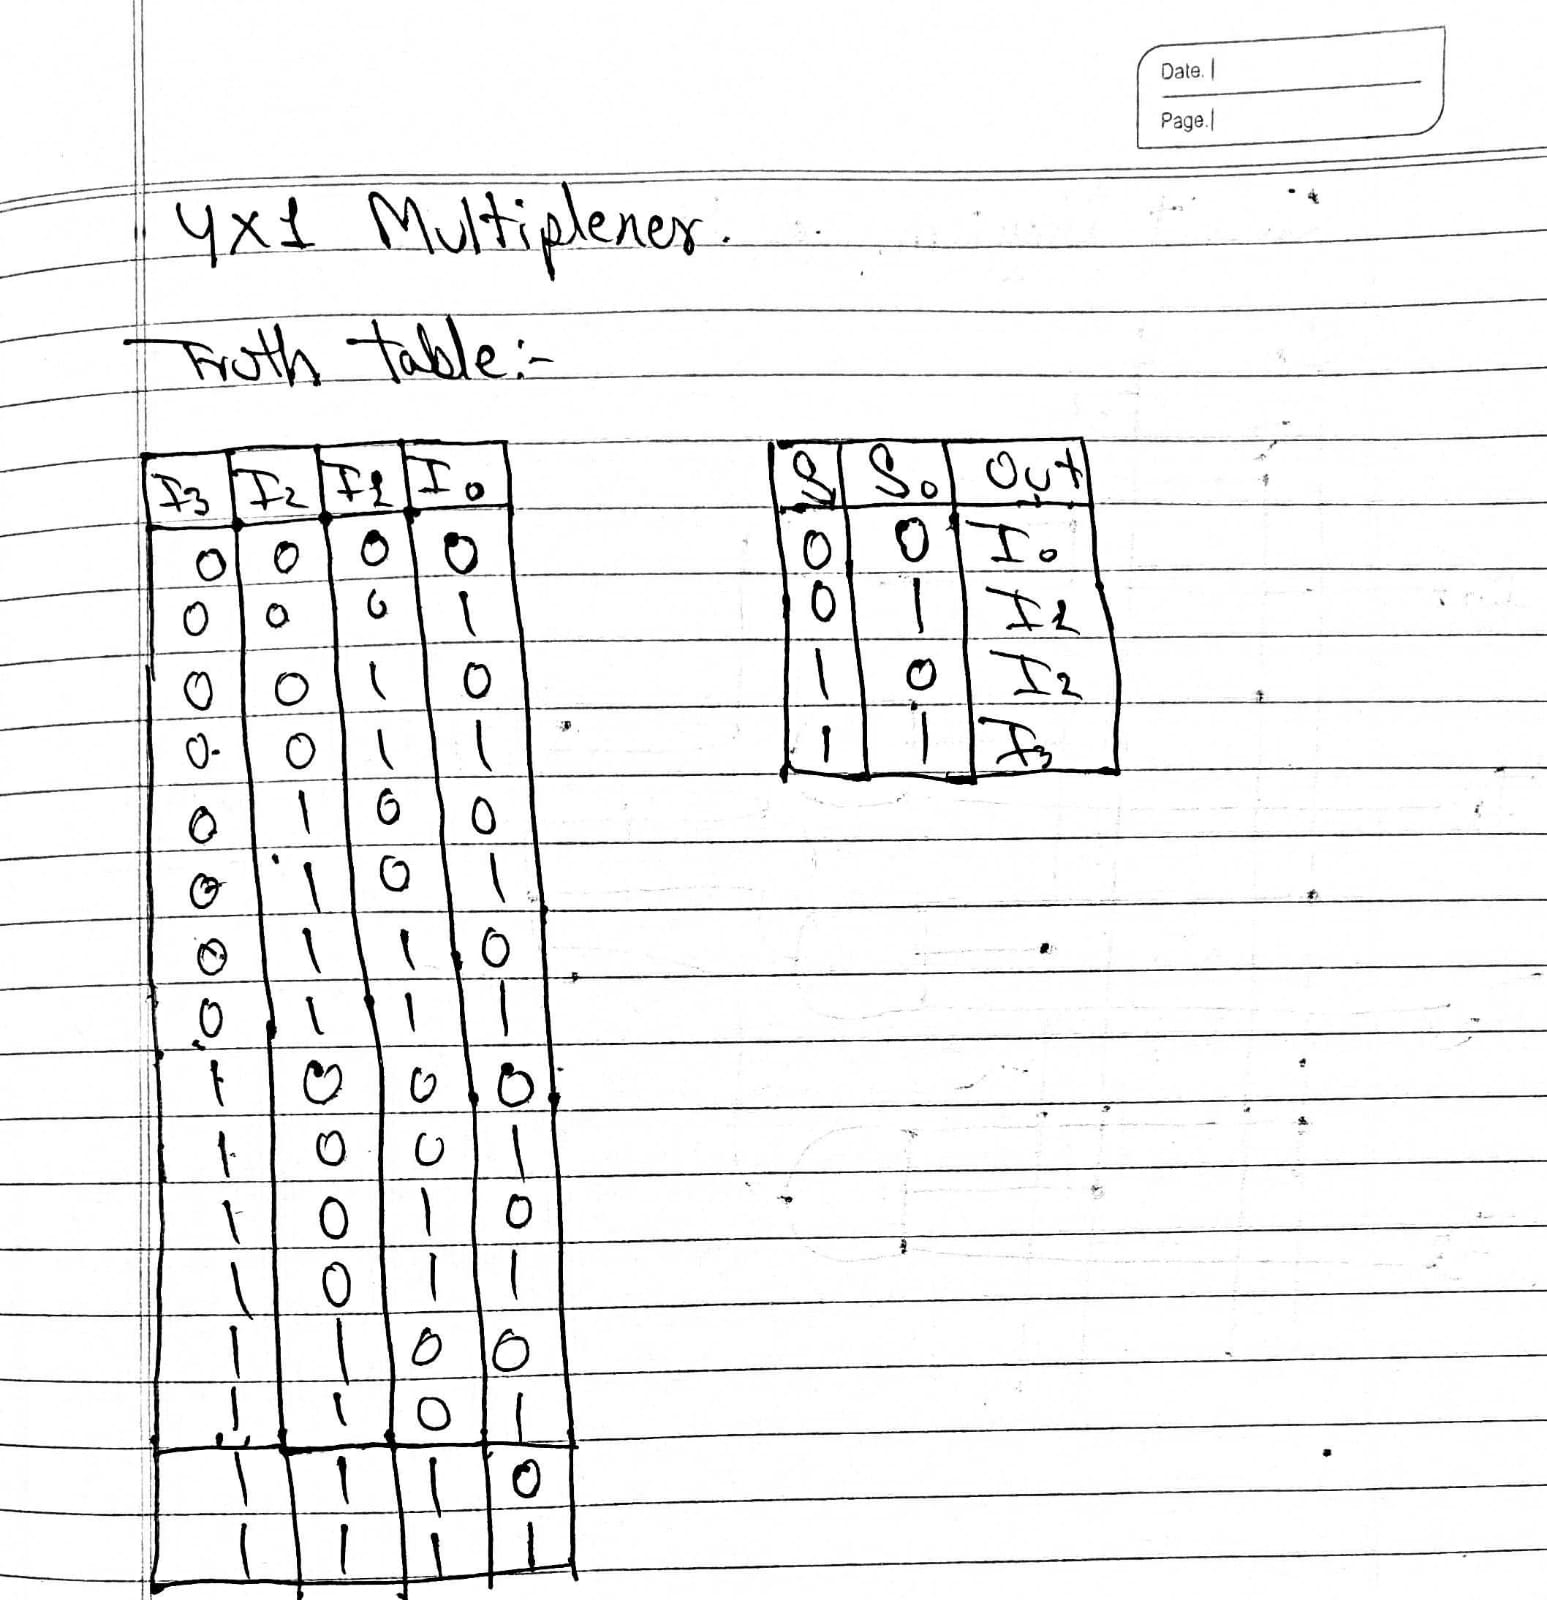 Date.
Page.
4x1 Multiplexer.
Truth table:-
I3 I2 I1 I0
0 0 0 0
0 0 0 1
0 0 1 0
0 0 1 1
0 1 0 0
0 1 0 1
0 1 1 0
0 1 1 1
1 0 0 0
1 0 0 1
1 0 1 0
1 0 1 1
1 1 0 0
1 1 0 1
1 1 1 0
1 1 1 1
S1 S0 Out
0 0 I0
0 1 I1
1 0 I2
1 1 I3